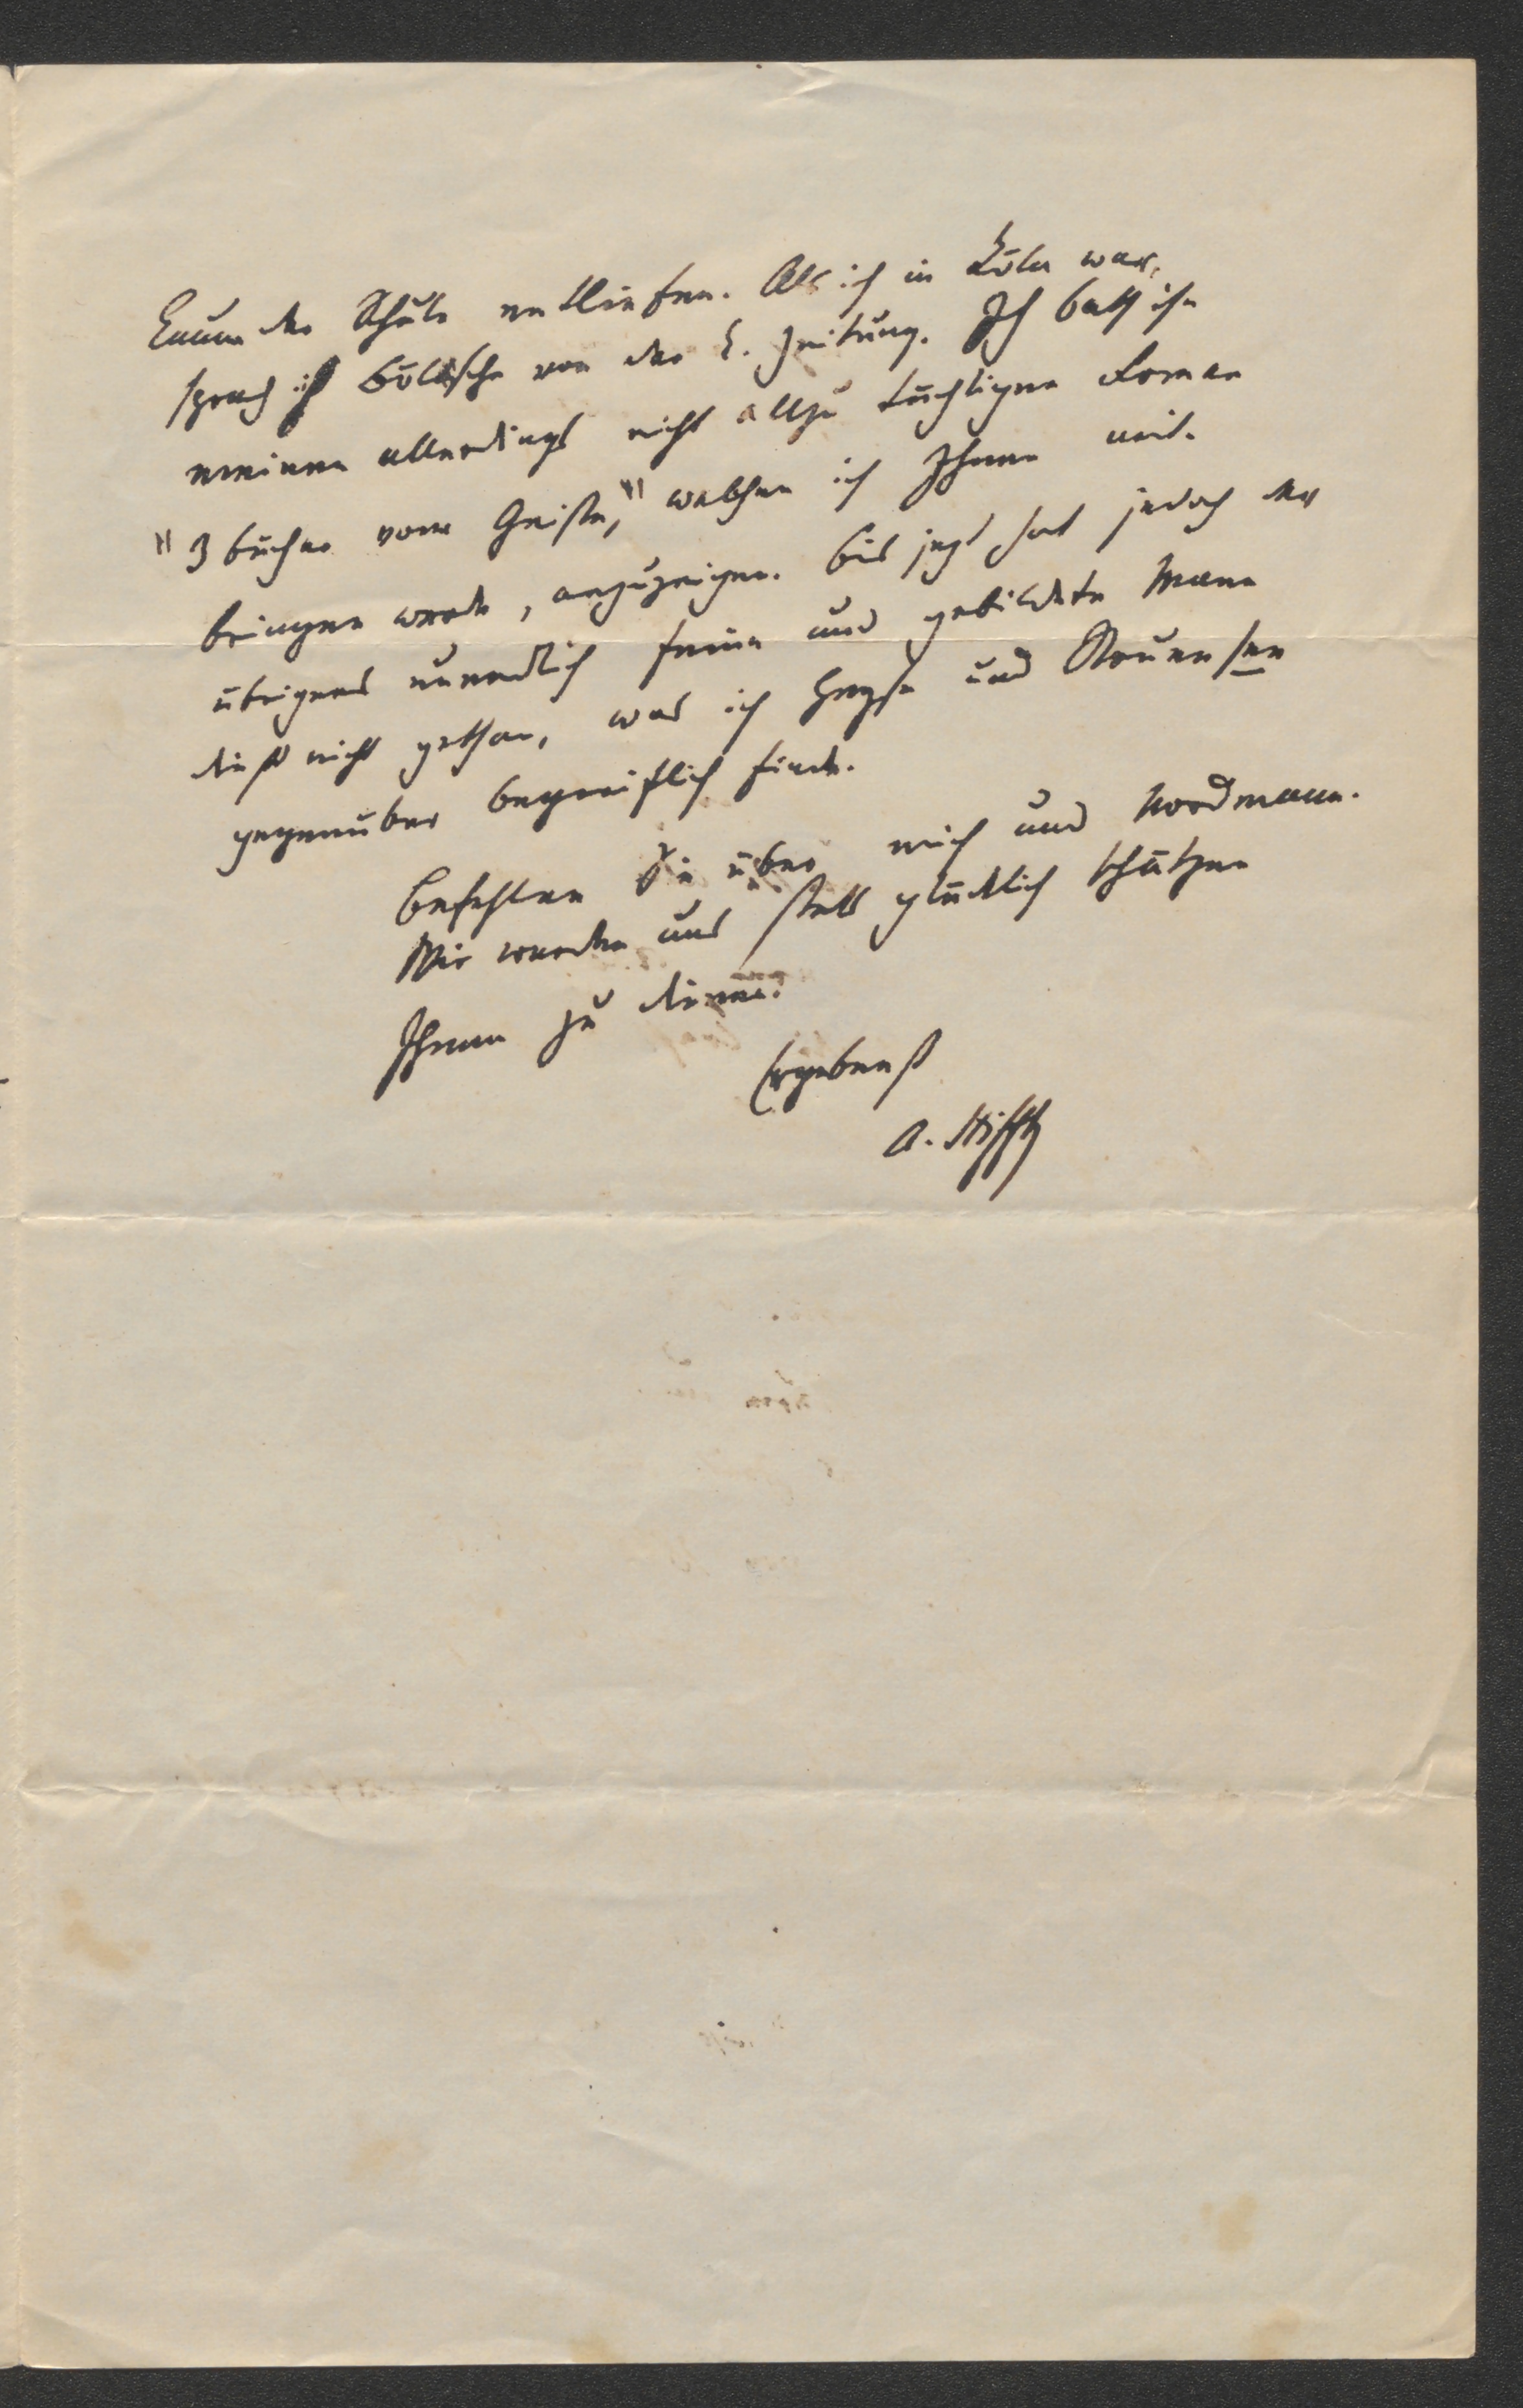 kaum der Schule entliefen. Als ich in Köln war,
sprach ich Bölsche von der K. Zeitung. Ich bath ihn
meinen allerdings nicht allzu tüchtigen Roman
"3 Bücher vom Geiste," welchen ich Ihnen mit-
bringen werde, anzuzeigen. Bis jezt hat jedoch der
übrigens unendlich feine und gebildete Mann
dieß nicht gethan, was ich Heyse und
gegenüber begreiflich finde.
Befehlen Sie über mich und Nordmann.
Wir werden uns stets glücklich schätzen
Ihnen zu dienen.
Ergebenst
A. Stifft